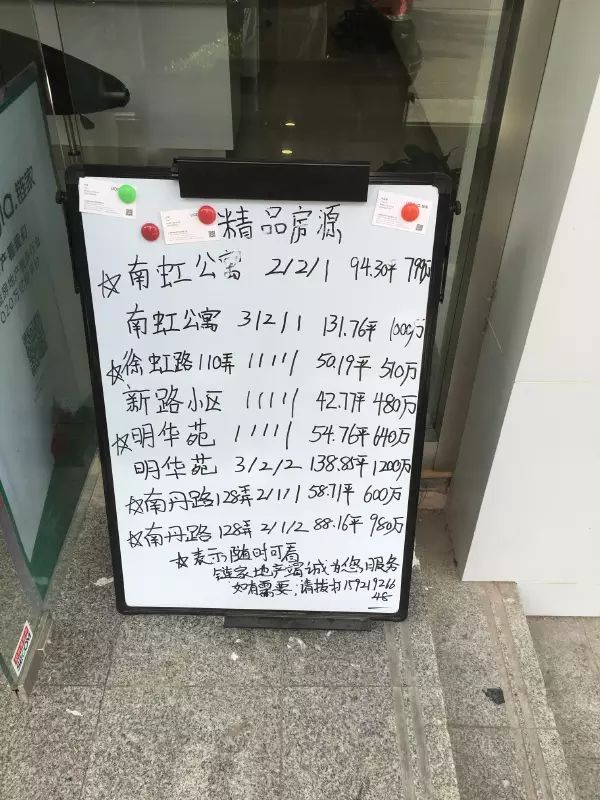 精品房源
☆南虹公寓 2/2/1 94.30坪 799万
南虹公寓 3/2/1 131.76坪 1000万
☆徐虹路110弄 1/1/1 50.19坪 510万
新路小区 1/1/1 42.77坪 480万
☆明华苑 1/1/1 54.76坪 640万
明华苑 3/2/2 138.85坪 1200万
☆南丹路128弄 2/1/1 58.71坪 600万
☆南丹路128弄 2/1/2 88.16坪 980万
☆表示随时可看
链家地产竭诚为您服务
如有需要,请拨打159219216
48
链家